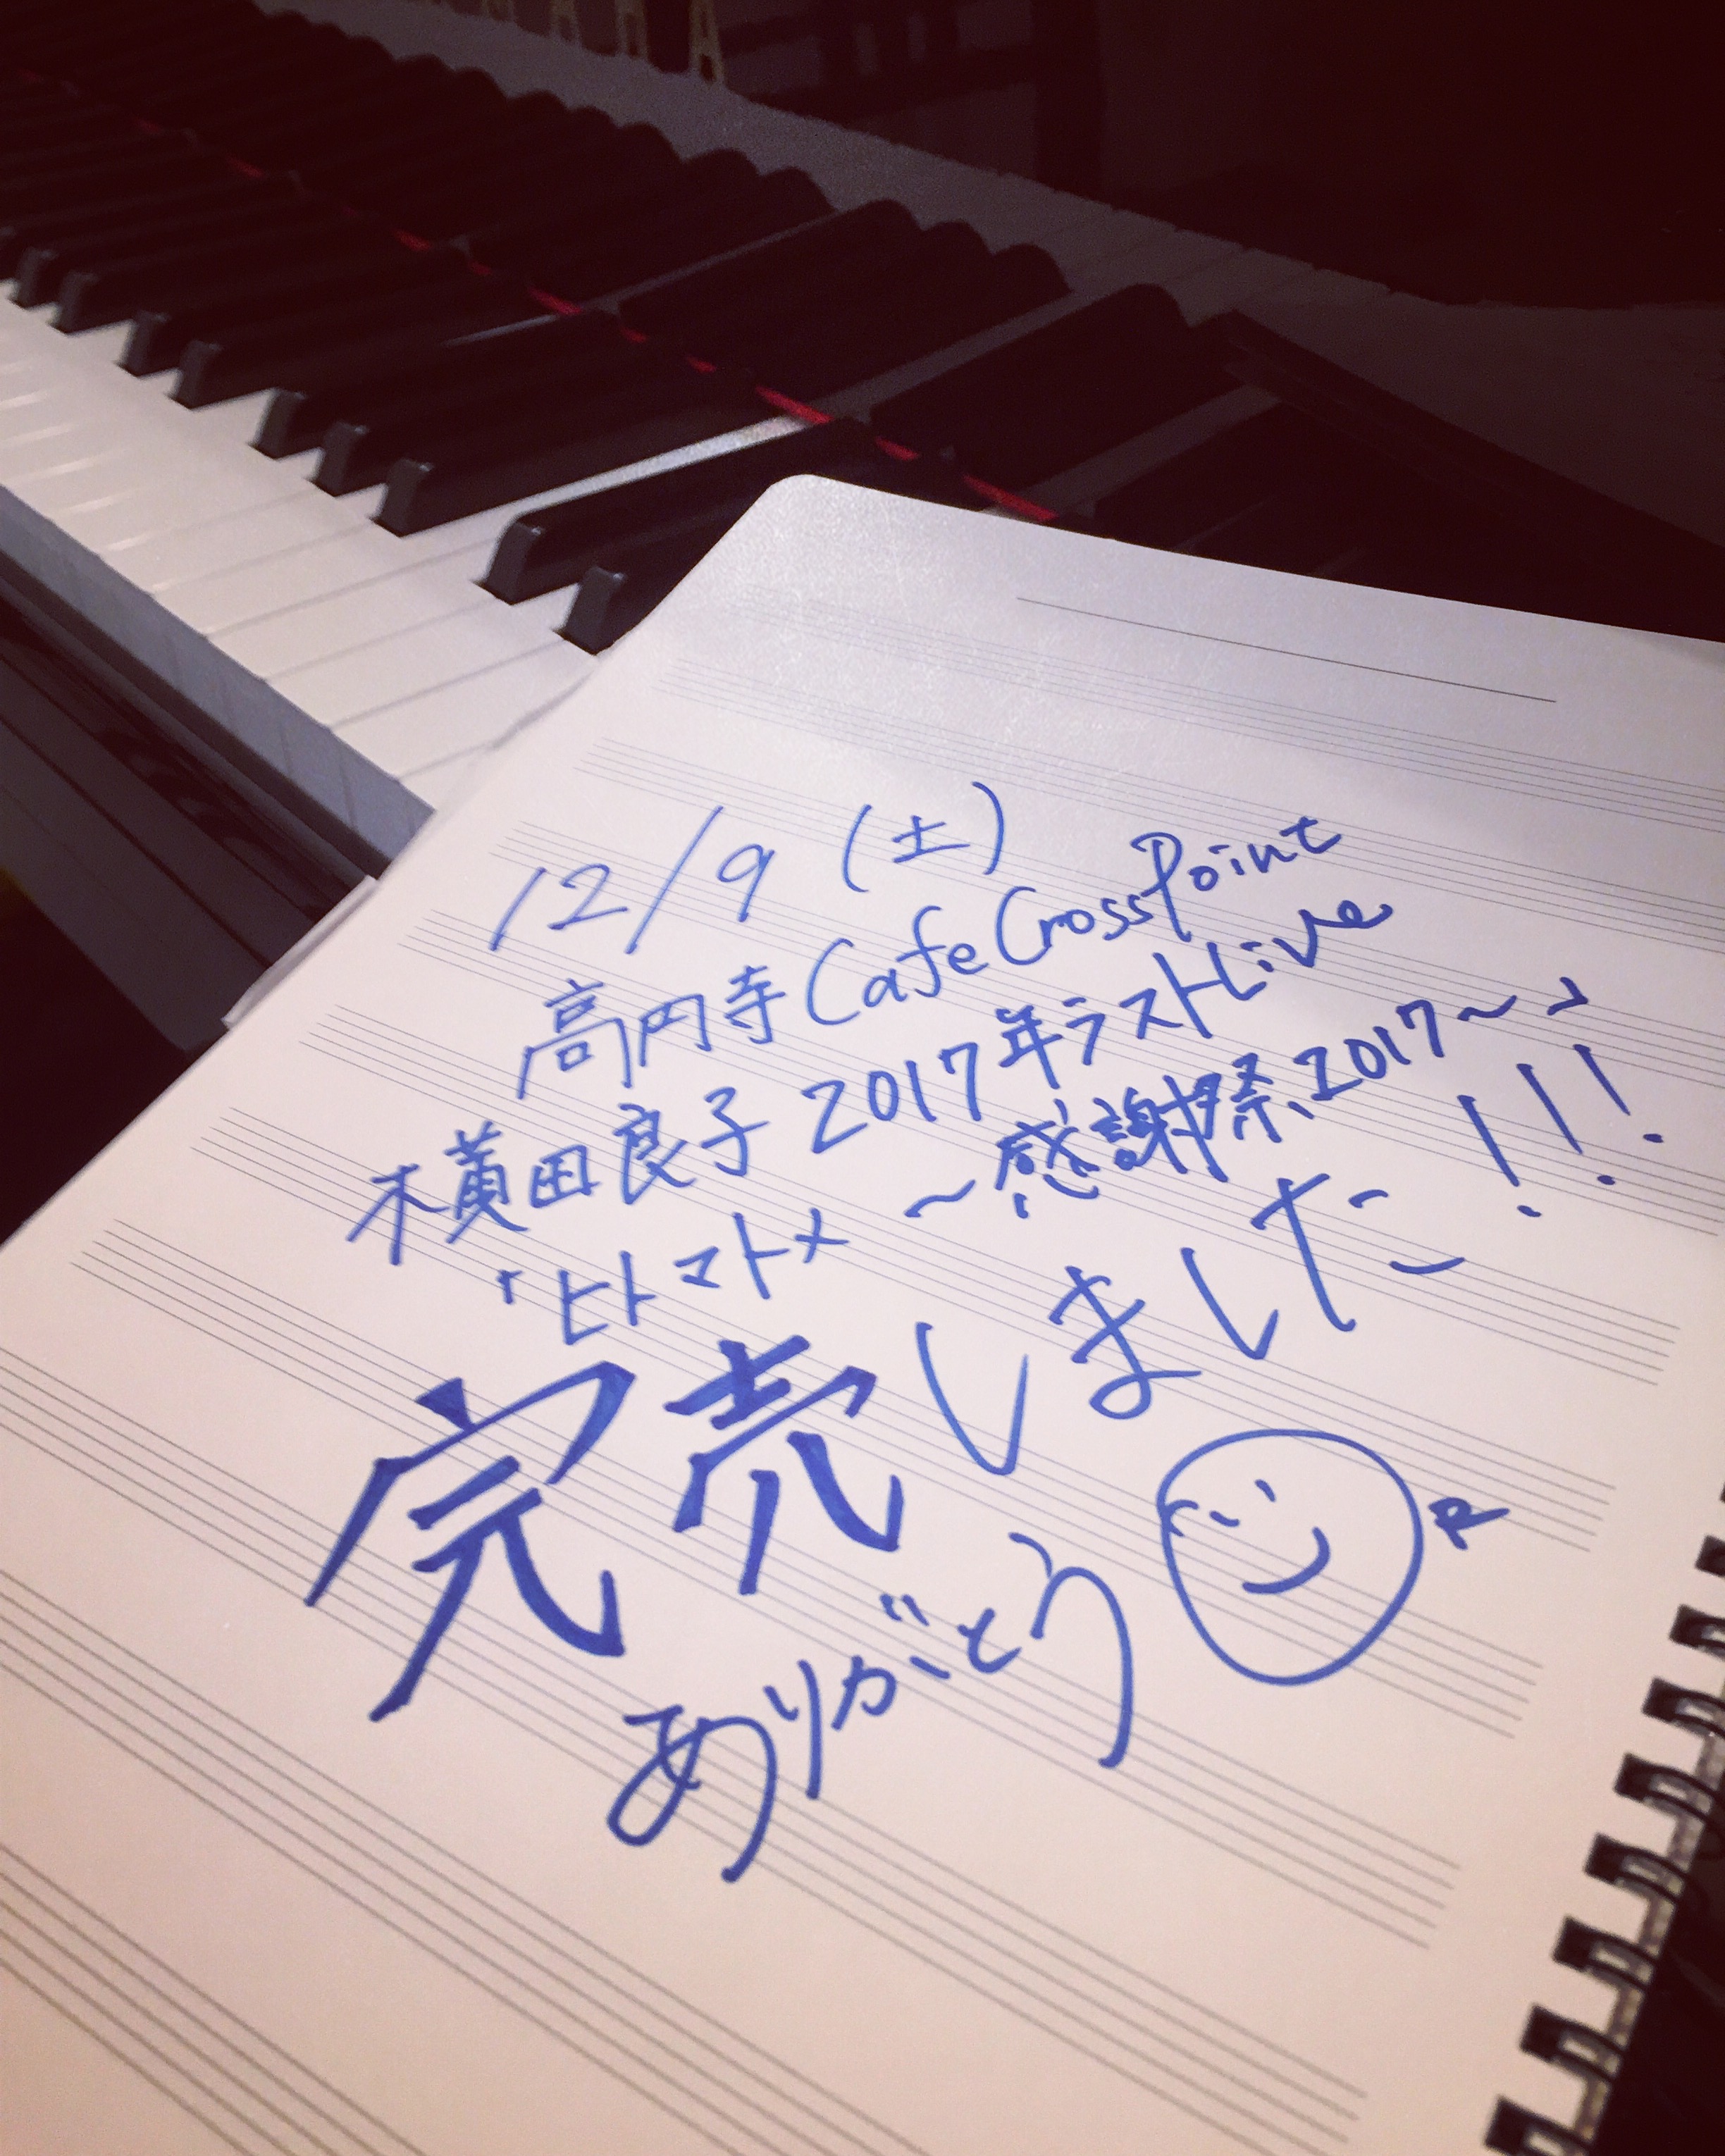 12/9 (土)
高円寺 Cafe CrossPoint
横田良子 2017年ラストLive
「ヒトマトメ ～感謝祭2017～」
完売しました!!!
ありがとう
R